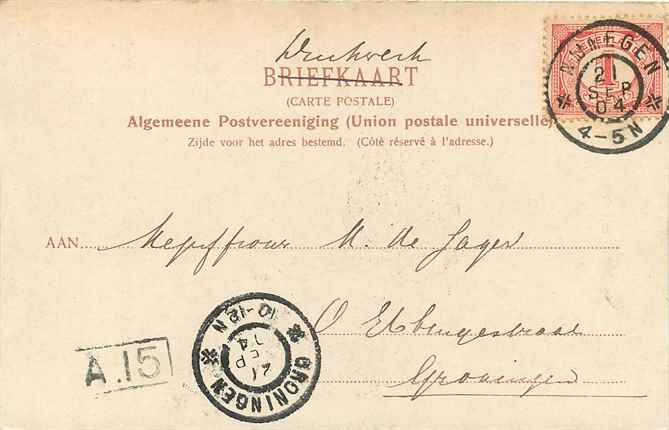 Drukwerk
BRIEFKAART
(CARTE POSTALE)
Algemeene Postvereeniging (Union postale universelle)
Zijde voor het adres bestemd. (Côté réservé à l'adresse.)
NIJMEGEN
21
SEP
04
4-5N
1
AAN Mejuffrouw M. de Jager
O Ebbingestraat
Groningen
A.15
GRONINGEN
21
SEP
04
10-12N